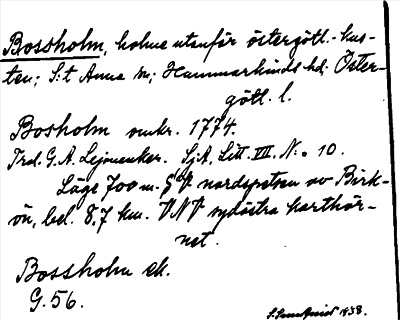 Bossholm, holme utanför östergötl.-kus-
ten; S:t Anna sn; Hammarkinds hd. Öster-
götl. l.
Bosholm omkr. 1774.
Trol. G. A. Lejonanker. SjA, Litt. VII. N:o 10.
Läge 700 m. SV nordspetsen av Birk-
ön, bel. 8,7 km. VNV sydöstra karthör-
net.
Bossholm ek.
G. 56.
1938.